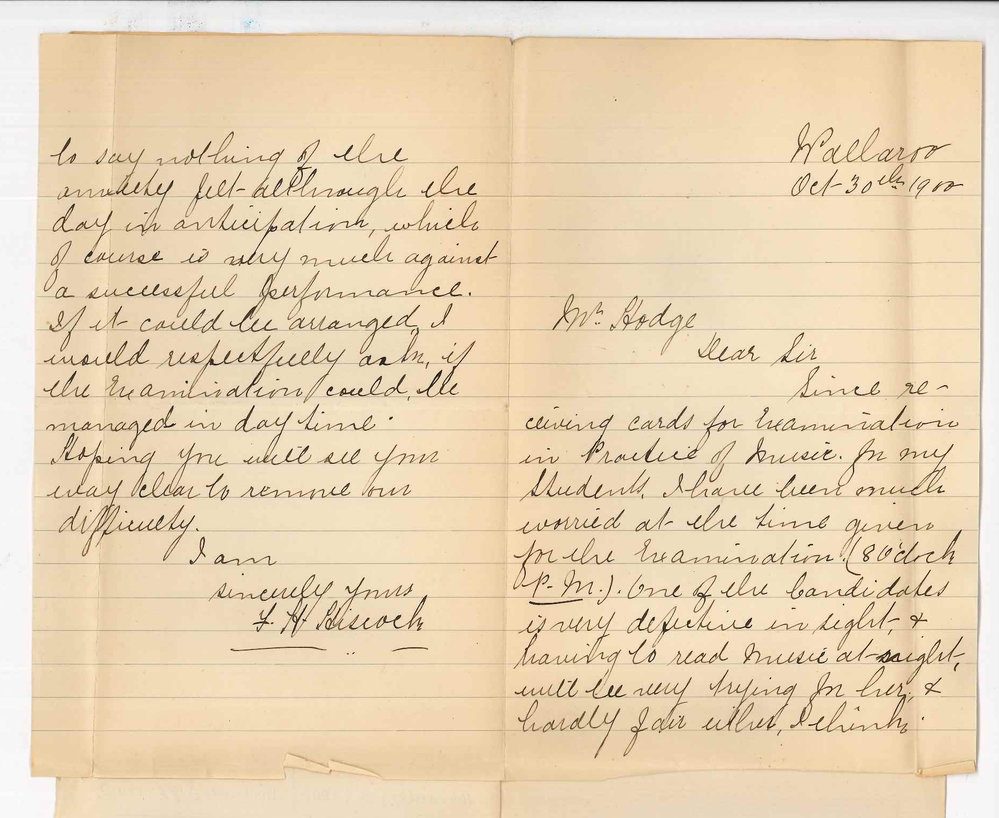 Wallaroo
Oct 30th 1900
Mr Hodge
Dear Sir
Since re-
ceiving cards for Examination
in Practice of Music for my
Students, I have been much
worried at the time given
for the Examination. (8 O'clock
P.M.). One of the Candidates
is very defective in sight, &
having to read Music at night,
will be very trying for her, &
hardly fair either, I think.
to say nothing of the
anxiety felt although the
day in anticipation, which
of course is very much against
a successful performance.
If it could be arranged, I
would respectfully ask, if
the Examination could, be
managed in day time.
Hoping you will see your
way clear to remove our
difficulty.
I am
sincerely yours
F. H. Hiscock